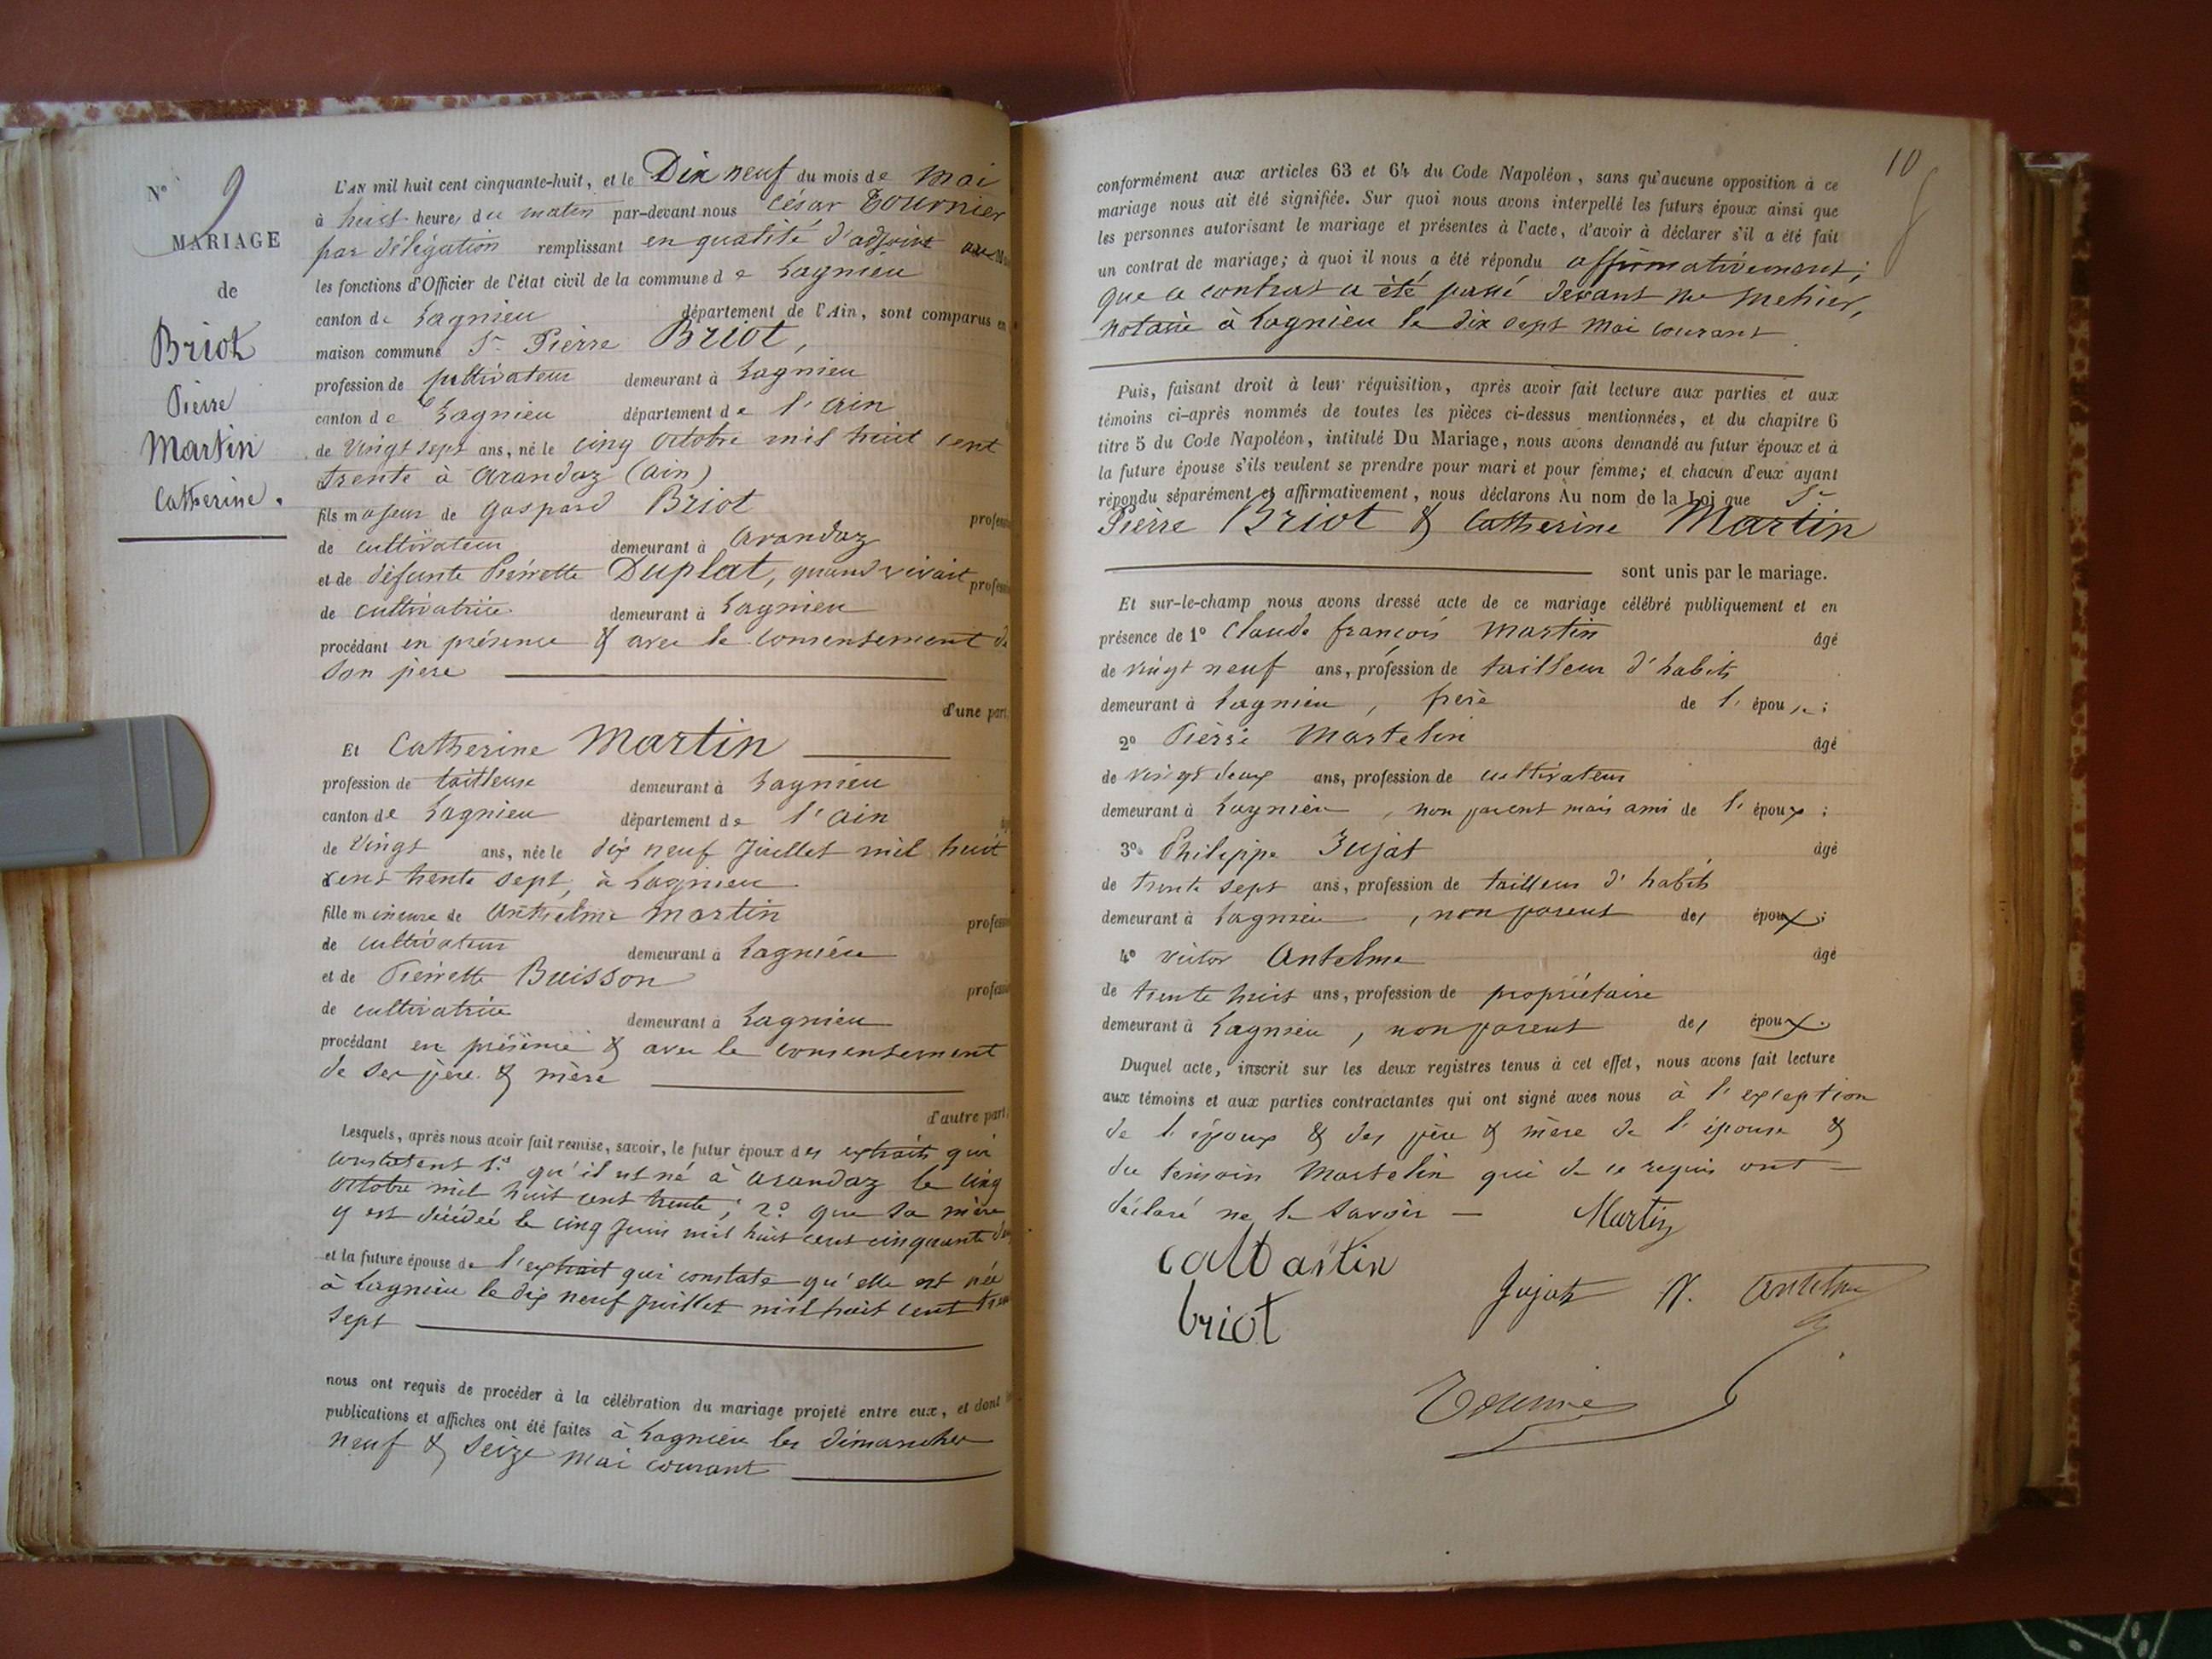 N° 9
MARIAGE
de
Briot
Pierre
Martin
Catherine.
L'AN mil huit cent cinquante-huit, et le Dix neuf du mois de Mai
à huit heures du matin par-devant nous César Tournier
par délégation remplissant en qualité d'adjoint au
les fonctions d'Officier de l'état civil de la commune de Lagnieu
canton de Lagnieu département de l'Ain, sont comparus en
maison commune Sr Pierre Briot,
profession de cultivateur demeurant à Lagnieu
canton de Lagnieu département de l'Ain
de vingt sept ans, né le cinq octobre mil huit cent
trente à Arandaz (Ain)
fils majeur de Gaspard Briot
de cultivateur demeurant à Arandaz
et de défunte Pierrette Duplat, quand vivait
de cultivatrice demeurant à Lagnieu
procédant en présence & avec le consentement de
son père
d'une part,
Et Catherine Martin
profession de tailleuse demeurant à Lagnieu
canton de Lagnieu département de l'Ain
de vingt ans, née le dix neuf Juillet mil huit
cent trente sept, à Lagnieu
fille mineure de Anthelme Martin
de cultivateur demeurant à Lagnieu
et de Pierrette Buisson
de cultivatrice demeurant à Lagnieu
procédant en présence & avec le consentement
de ses père & mère
d'autre part.
Lesquels, après nous avoir fait remise, savoir, le futur époux des extraits qui
constatent 1° qu'il est né à Arandaz le cinq
octobre mil huit cent trente; 2° que sa mère
y est décédée le cinq Juin mil huit cent cinquante
et la future épouse de l'extrait qui constate qu'elle est née
à Lagnieu le dix neuf Juillet mil huit cent
sept
nous ont requis de procéder à la célébration du mariage projeté entre eux, et dont
publications et affiches ont été faites à Lagnieu les dimanches
neuf & seize mai courant
10
conformément aux articles 63 et 64 du Code Napoléon, sans qu'aucune opposition à ce
mariage nous ait été signifiée. Sur quoi nous avons interpellé les futurs époux ainsi que
les personnes autorisant le mariage et présentes à l'acte, d'avoir à déclarer s'il a été fait
un contrat de mariage; à quoi il nous a été répondu affirmativement;
que ce contrat a été passé devant Me Mehier,
notaire à Lagnieu le dix sept mai courant
Puis, faisant droit à leur réquisition, après avoir fait lecture aux parties et aux
témoins ci-après nommés de toutes les pièces ci-dessus mentionnées, et du chapitre 6
titre 5 du Code Napoléon, intitulé Du Mariage, nous avons demandé au futur époux et à
la future épouse s'ils veulent se prendre pour mari et pour femme; et chacun d'eux ayant
répondu séparément et affirmativement, nous déclarons Au nom de la Loi que Sr
Pierre Briot & Catherine Martin
sont unis par le mariage.
Et sur-le-champ nous avons dressé acte de ce mariage célébré publiquement et en
présence de 1° Claude françois Martin âgé
de vingt neuf ans, profession de tailleur d'habits
demeurant à Lagnieu, frère de l'épouse;
2° Pierre Martelin âgé
de vingt deux ans, profession de cultivateur
demeurant à Lagnieu, non parent mais ami de l'époux;
3° Philippe Jujat âgé
de trente sept ans, profession de tailleur d'habits
demeurant à Lagnieu, non parent des époux;
4° victor Antelme âgé
de trente huit ans, profession de propriétaire
demeurant à Lagnieu, non parent des époux.
Duquel acte, inscrit sur les deux registres tenus à cet effet, nous avons fait lecture
aux témoins et aux parties contractantes qui ont signé avec nous à l'exception
de l'époux & des père & mère de l'épouse &
du témoin Martelin qui de ce requis ont
déclaré ne le savoir Martin
cat Martin
briot
Jujat V. Antelme
Tournier